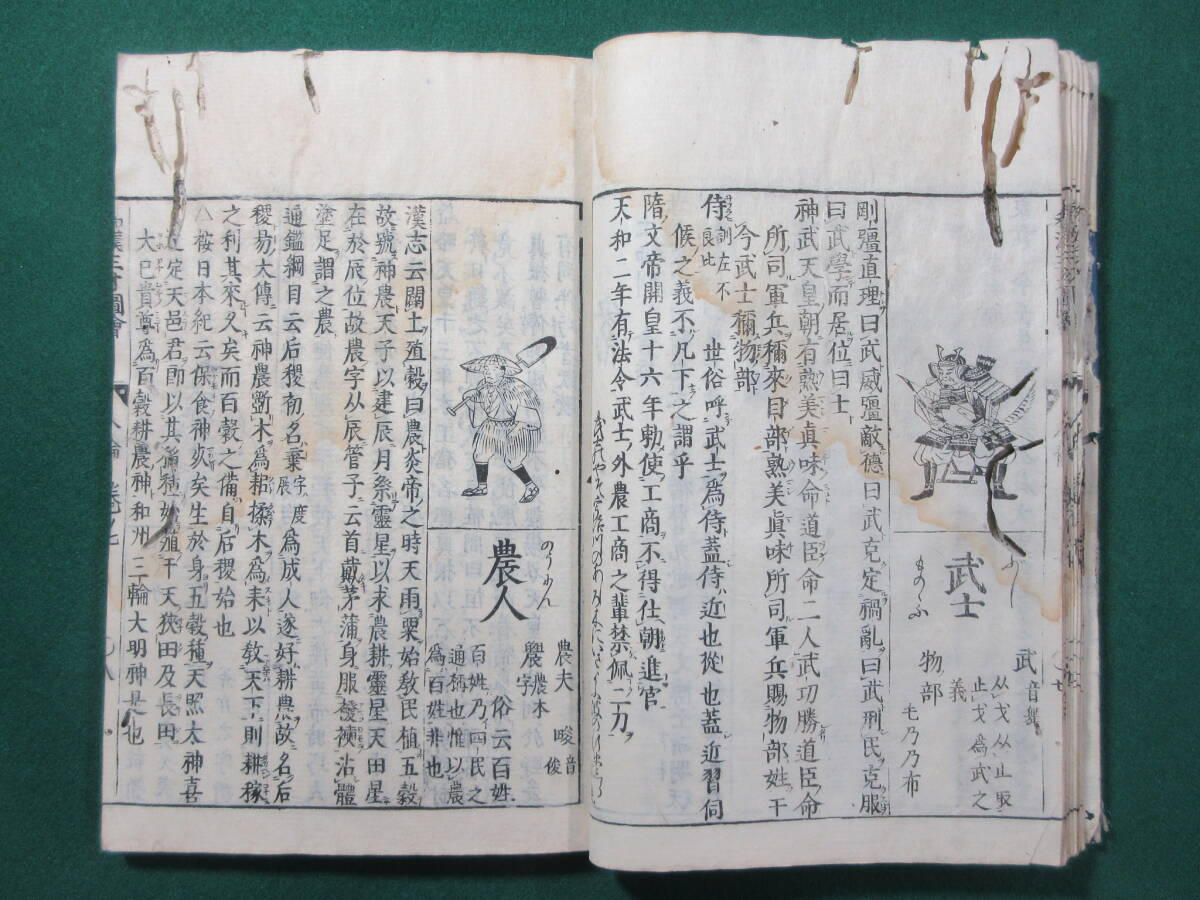 武士
ものゝふ
武 音舞
从止从戈 取
止戈為武之
義
物部
毛乃乃布
剛彊直理曰武威彊敵德曰武克定禍亂曰武刑民克服
曰武學而居位曰士
神武天皇朝有熟美眞味命道臣命二人武功勝道臣命
所司軍兵稱來目部熟美眞味所司軍兵賜物部姓于
今武士稱物部
侍 訓左不良比 世俗呼武士為侍蓋侍近也從也蓋近習伺
候之義不凡下之謂乎
隋文帝開皇十六年勅使工商不得仕朝進官
天和二年有法令武士外農工商之輩禁佩二刀
農人
のうにん
農夫 畯音俊
農字
俗云百姓
百姓乃四民之
通稱也惟以農
為百姓非也
漢志云闢土殖穀曰農炎帝之時天雨粟始敎民植五穀
故號神農天子以建辰月祭靈星以求農耕靈星天田星
在於辰位故農字从辰管子云首戴茅蒲身服襏襫沾體
塗足謂之農
通鑑綱目云后稷初名棄字度辰為成人遂好耕農故名后
稷昜大傳云神農斵木為耜揉木為耒以敎天下則耕稼
之利其來久矣而百穀之備自后稷始也
按日本紀云保食神死矣生於身五穀種天照太神喜
定天邑君即以其稲種始殖于天狹田及長田
大己貴尊為百穀耕農神和州三輪大明神是也
人倫 卷七